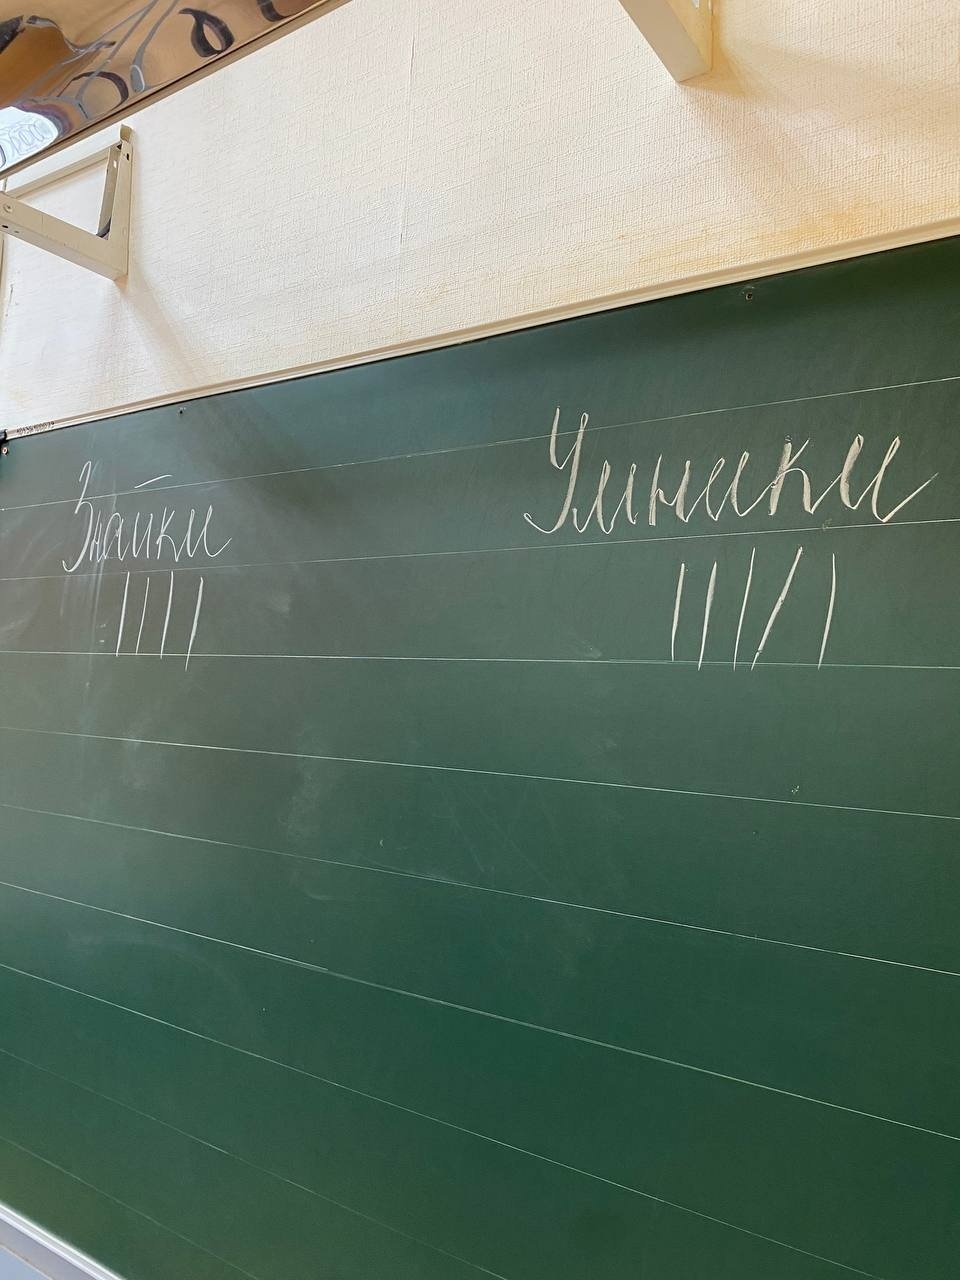 Знайки
Умники
||||
|||||